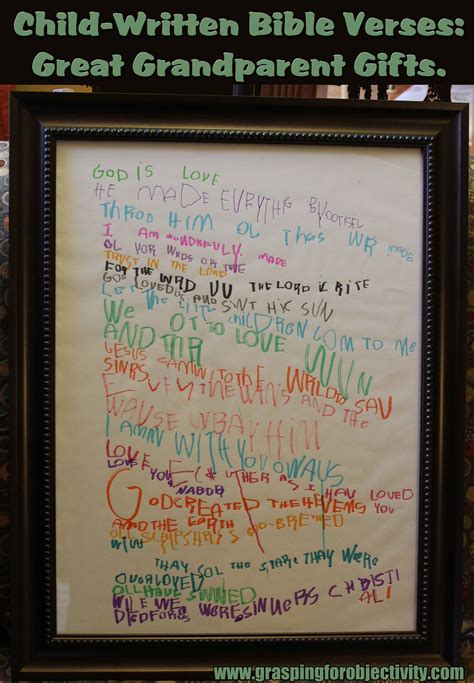 Child-Written Bible Verses:
Great Grandparent Gifts.
GOD IS LOVE
HE MADE EVRYTHIG BYOOTISEL
THROO HIM OL THGS WR MADE
I AM WNDRFULY MADE
OL YOR WRDS OR TRE
TRUST IN THE LORD
FOR THE WRD UV THE LORD IC RITE
GOD LOVED US AND SINT HIC SUN
LET THE LITTL CHILDREN COM TO ME
WE OT TO LOVE WUN
ANOTHR
JESUS CAMM IN TO THE WRLD TO SAV
SINRS
EEVEN THE WINS AND THE
WAUSE UBAY HIM
I AMM WITH YOU OWAYS
LOVE EACH UTHER AS I HAV LOVED
LOVE YOUR YOU
NABOR
GOD CREATED THE HEVENS
AND THE EARTH
OLL SCRIPSHR IS GOD-BRETHED
WIN
THAY SOL THE STARE THAY WERE
OVERJOYED
OLL HAVE SINNED
WILE WE WERE SINNERS CHRIST
DIED FOR US ALI
www.graspingforobjectivity.com